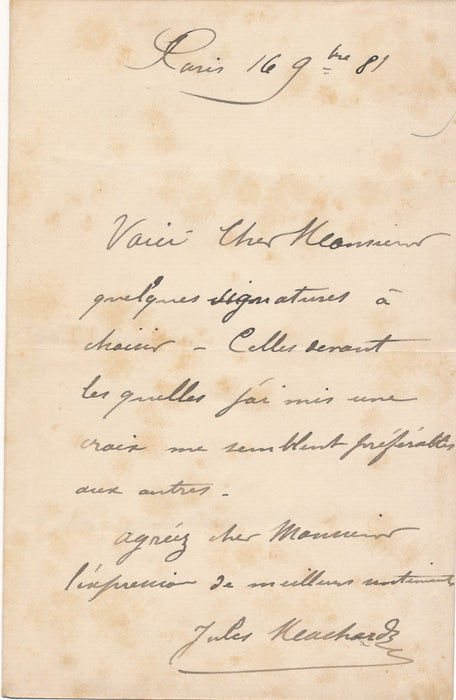 Paris 16 9bre 81
Voici Cher Monsieur
quelques signatures à
choisir - Celles devant
les quelles j'ai mis une
croix me semblent préférables
aux autres -
agréez cher Monsieur
l'expression de meilleurs sentiments
Jules Machard